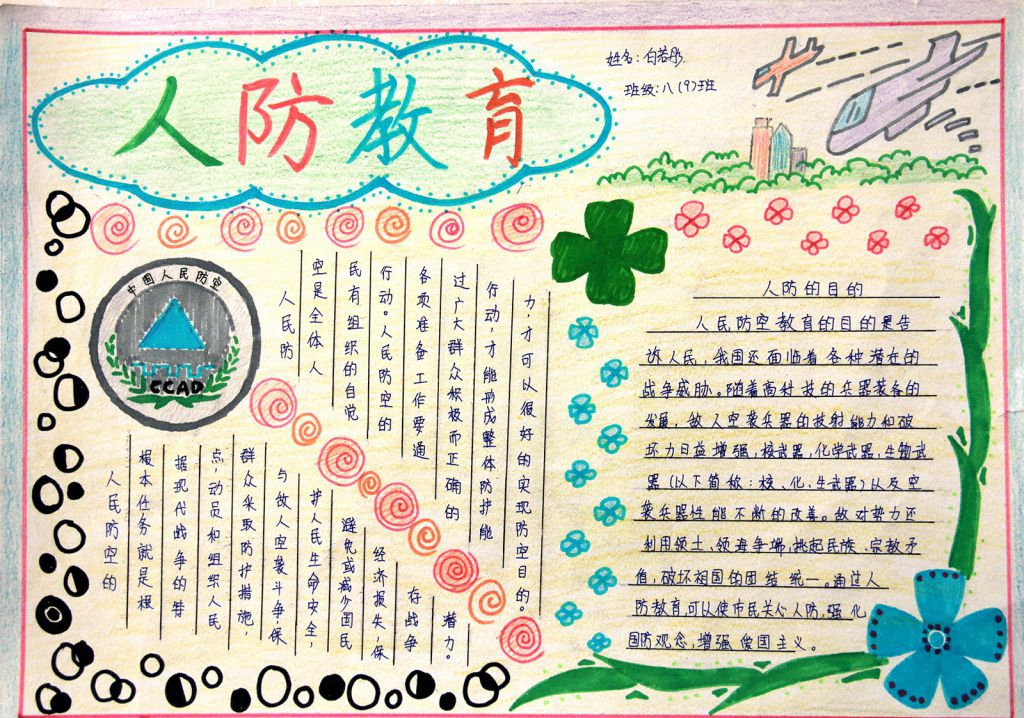 人防教育
姓名:
班级:八(9)班
中国人民防空
CCAD
人民防
空是全体人
民有组织的自觉
行动。人民防空的
各项准备工作要通
过广大群众积极而正确的
行动,才能形成整体防护能
力,才可以很好的实现防空目的。
人民防空的
根本任务就是根
据现代战争的特
点,动员和组织人民
群众采取防护措施,
与敌人空袭斗争,保
护人民生命安全,
避免或减少国民
经济损失,保
存战争
潜力。
人防的目的
人民防空教育的目的是告
诉人民,我国还面临着各种潜在的
战争威胁。随着高科技的兵器装备的
发展,敌人空袭兵器的投射能力和破
坏力日益增强,核武器,化学武器,生物武
器(以下简称:核、化、生武器)以及空
袭兵器性能不断的改善。敌对势力还
利用领土、领海争端,挑起民族、宗教矛
盾,破坏祖国的团结统一。通过人
防教育,可以使市民关心人防,强化
国防观念,增强爱国主义。